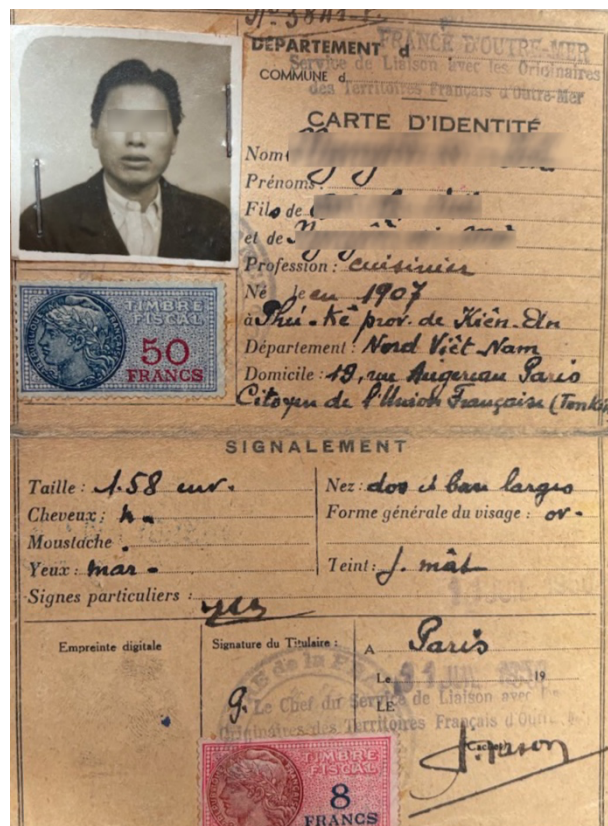 DÉPARTEMENT d
FRANCE D'OUTRE-MER
Service de Liaison avec les Originaires
COMMUNE d
des Territoires Français d'Outre-Mer
CARTE D'IDENTITÉ
Nom
Prénoms:
Fils de
et de
Profession: cuisinier
Né le en 1907
à Phú-Kê prov. de Kiên-An
Département: Nord Viêt-Nam
Domicile: 19, rue Augereau Paris
Citoyen de l'Union Française (Tonkin
TIMBRE
FISCAL
50
FRANCS
SIGNALEMENT
Taille: 1.58 env.
Cheveux: n-
Moustache
Yeux: mar-
Signes particuliers:
Nez: dos et base larges
Forme générale du visage: ov-
Teint: j. mât
Empreinte digitale
Signature du Titulaire:
A Paris
Le 19
LE
Le Chef du Service de Liaison avec
Originaires des Territoires Français d'Outre
TIMBRE
FISCAL
8
FRANCS